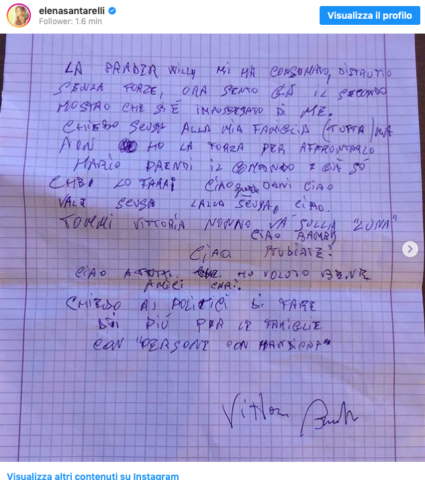 elenasantarelli
Follower: 1.6 mln
Visualizza il profilo
LA PRADER Willy MI HA CONSUMATO, DISTRUTTO
SENZA FORZE, ORA SENTO GIÀ IL SECONDO
MOSTRO CHE SI È IMPOSSESSATO DI ME.
CHIEDO SCUSA ALLA MIA FAMIGLIA (TUTTA) MA
NON HO LA FORZA PER AFFRONTARLO
MARIO PRENDI IL COMANDO E GIÀ SÓ
CHE LO FARAI CIAO DANI CIAO
VALE SCUSA SCUSA, CIAO.
TOMMI VITTORIA NONNO VÁ SULLA "LUNA"
CIAO BAMBI
CIAO STUDIATE!
CIAO A TUTTI HO VOLUTO BENE
AMICI CARI.
CHIEDO AI POLITICI DI FARE
DI PIÚ PER LE FAMIGLIE
CON "PERSONE CON HANDICAP"
Visualizza altri contenuti su Instagram